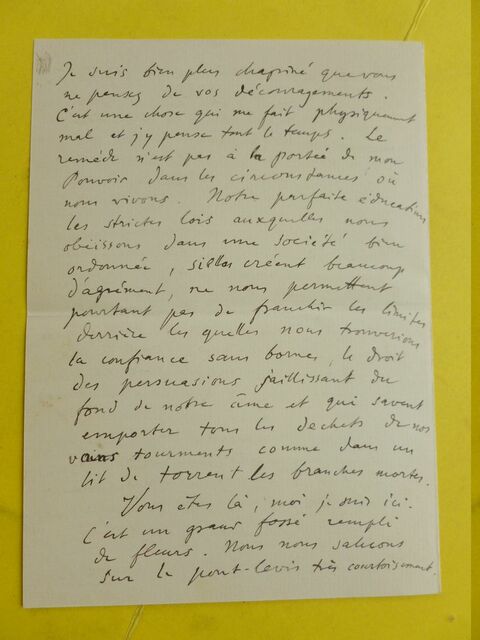 Je suis bien plus chagriné que vous
ne pensez de vos découragements.
C'est une chose qui me fait physiquement
mal et j'y pense tout le temps. Le
remède n'est pas à la portée de mon
Pouvoir dans les circonstances où
nous vivons. Notre parfaite éducation,
les strictes lois auxquelles nous
obéissons dans une société bien
ordonnée, si elles créent beaucoup
d'agrément, ne nous permettent
pourtant pas de franchir les limites
derrière les quelles nous trouverions
la confiance sans bornes, le droit
des persuasions jaillissant du
fond de notre âme et qui savent
emporter tous les déchets de nos
vains tourments comme dans un
lit de torrent les branches mortes.
Vous êtes là, moi je suis ici.
C'est un grand fossé rempli
de fleurs. Nous nous saluons
sur le pont-levis très courtoisement.